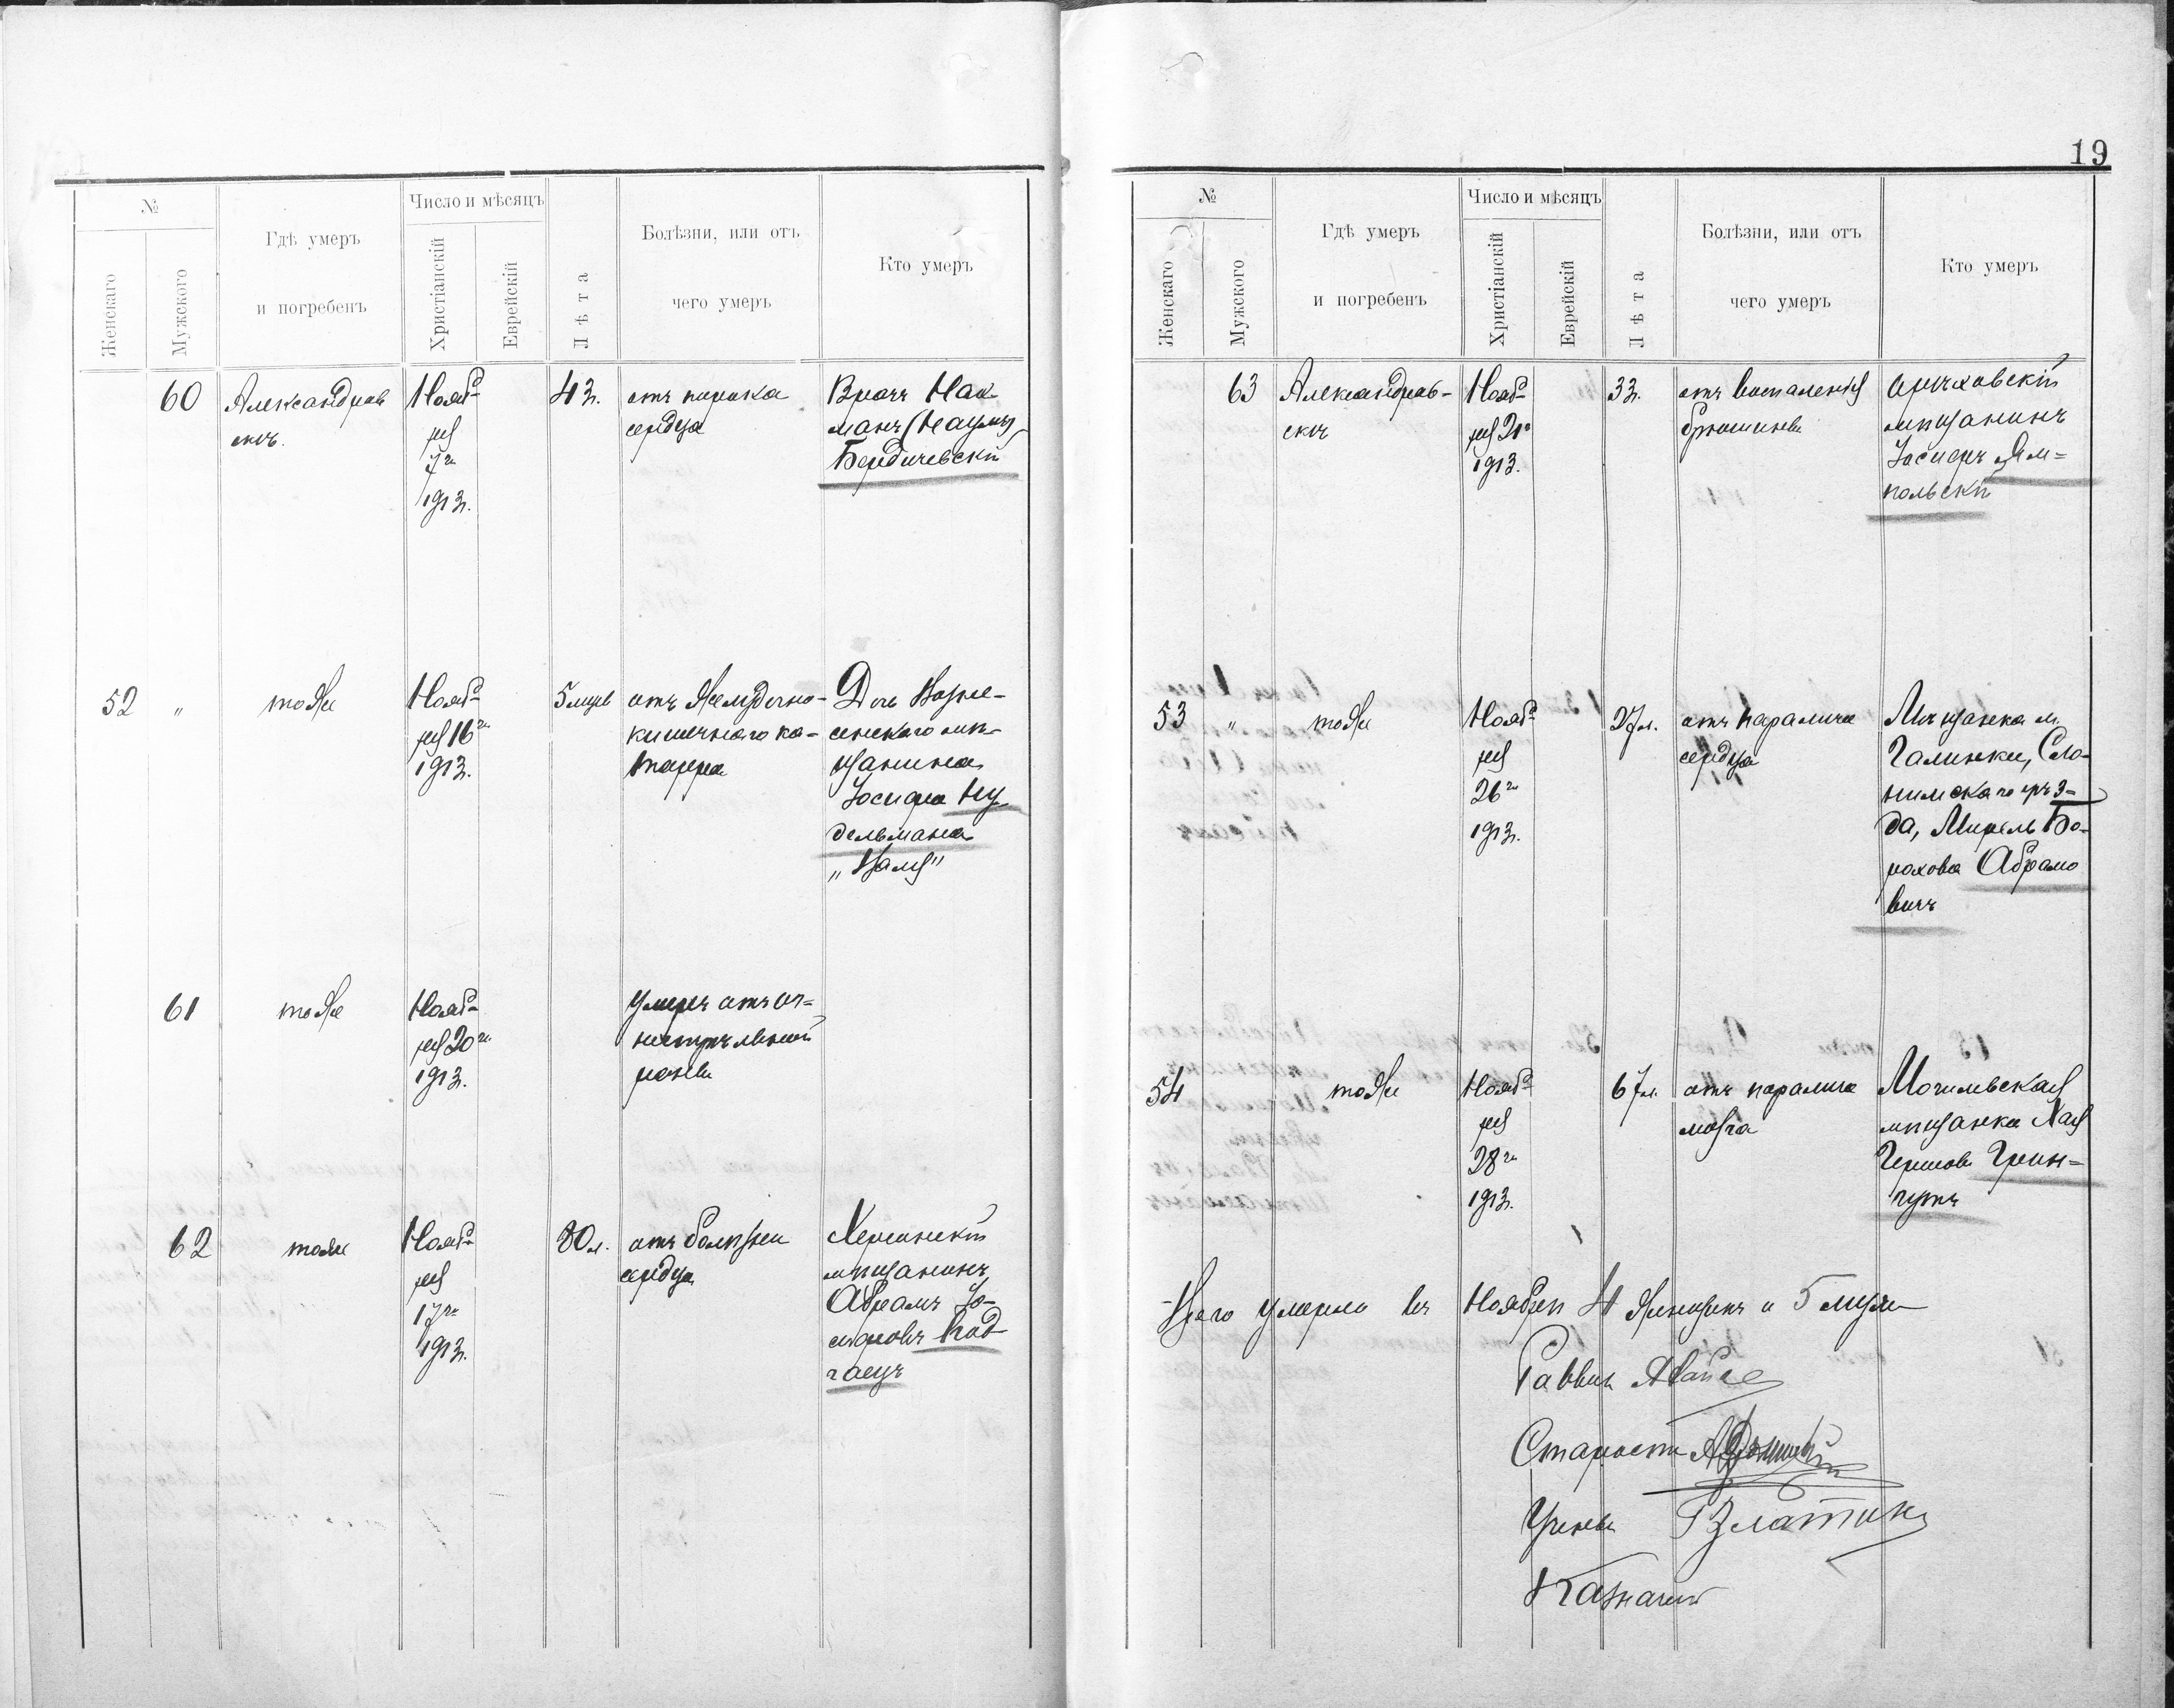 19
№
Женскаго
Мужского
Гдѣ умеръ
и погребенъ
Число и мѣсяцъ
Христіанскій
Еврейскій
Лѣта
Болѣзни, или отъ
чего умеръ
Кто умеръ
60
Александров
скѣ.
Нояб-
ря
7го
1913.
43.
отъ порока
сердца
Врачъ Нах
манъ (Наумъ)
Бердичевскій
52 "
тоже
Нояб-
ря 16го
1913.
5 мцев
отъ желудочно-
кишечнаго ка-
тарра
Дочь Возне-
сенскаго мѣ-
щанина
Іосифа Ну
дельмана
61
тоже
Нояб-
ря 20го
1913.
умеръ отъ ог-
нестрѣльной
раны
62
тоже
Нояб-
ря
17го
1913.
80 л.
отъ болѣзни
сердца
Херсонскій
мѣщанинъ
Абрамъ Іо-
сифовъ
№
Женскаго
Мужского
Гдѣ умеръ
и погребенъ
Число и мѣсяцъ
Христіанскій
Еврейскій
Лѣта
Болѣзни, или отъ
чего умеръ
Кто умеръ
63
Александров-
скъ
Нояб-
ря 21го
1913.
33.
отъ воспаленія
брюшины
Орѣховскій
мѣщанинъ
Іосифъ Ям=
польскій
53 "
тоже
Нояб-
ря
26го
1913.
27 л.
отъ паралича
сердца
Мѣщанка м.
Галинки, Сло-
нимскаго уѣз-
да, Мирель Бо-
рохова Абрамо
вичъ
54
тоже
Нояб-
ря
28го
1913.
67 л.
отъ паралича
мозга
Могилевская
мѣщанка Хая
Гершова Грин=
гутъ
Всего умерло въ Ноябрѣ 4 женщинъ и 5 мужч
Раввинъ
Староста
Ученый Г Златкинъ
Казначей